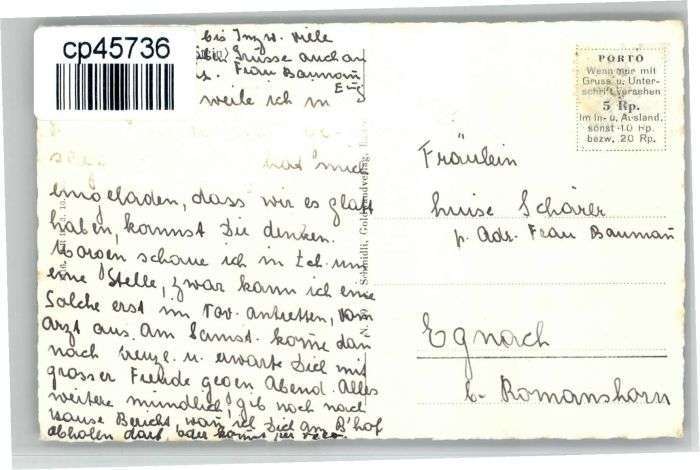 cp45736
bis Inzw. viele
Grüsse auch an
Frau Baumañ
weile ich in
hat mich
eingeladen, dass wir es glatt
haben, kannst Die denken.
Morgen schaue ich in Zch. um
eine Stelle, zwar kann ich eine
Solche erst im Nov. antretten, vom
Arzt aus. Am Samst. kom̄e dan
nach u. erwarte Dich mit
grosser Freude gegen Abend. Alles
weitere mündlich, gib noch nach
Hause Bericht, wañ ich Dich am B'hof
abholen darf, oder kom̄st per
Schmidli, Goldbandverlag,
PORTO
Wenn nur mit
Gruss u. Unter-
schrift versehen
5 Rp.
Im In- u. Ausland,
sonst 10 Rp.
bezw. 20 Rp.
Fräulein
Luise Schärer
p. Adr. Frau Baumañ
Egnach
b. Romanshorn